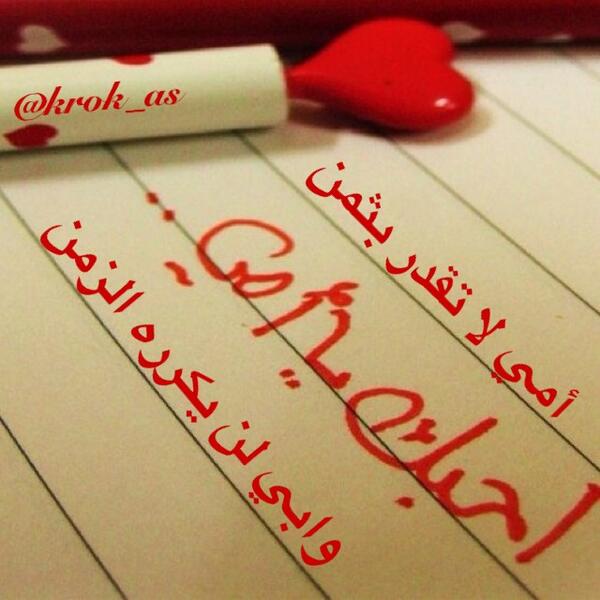 @krok_as
أمي لا تقدر بثمن
احبك يا أمي ..
وابي لن يكرره الزمن